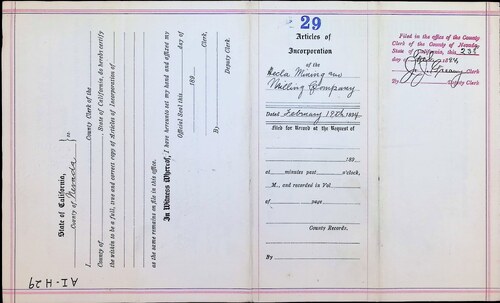 State of California, } ss.
County of Nevada
I County Clerk of the
County of State of California, do hereby certify
the within to be a full, true and correct copy of Articles of Incorporation of
as the same remains on file in this office.
In Witness Whereof, I have hereunto set my hand and affixed my
Official Seal this day of
189
Clerk,
By
Deputy Clerk.
AI-H29
29
Articles of
Incorporation
of the
Hecla Mining and
Milling Company.
Dated February 19th 1894
Filed for Record at the Request of
189
at minutes past o'clock,
M., and recorded in Vol.
of page
County Records.
By
Filed in the office of the County
Clerk of the County of Nevada,
State of California, this 23d
day of 1894
Clerk
By Deputy Clerk